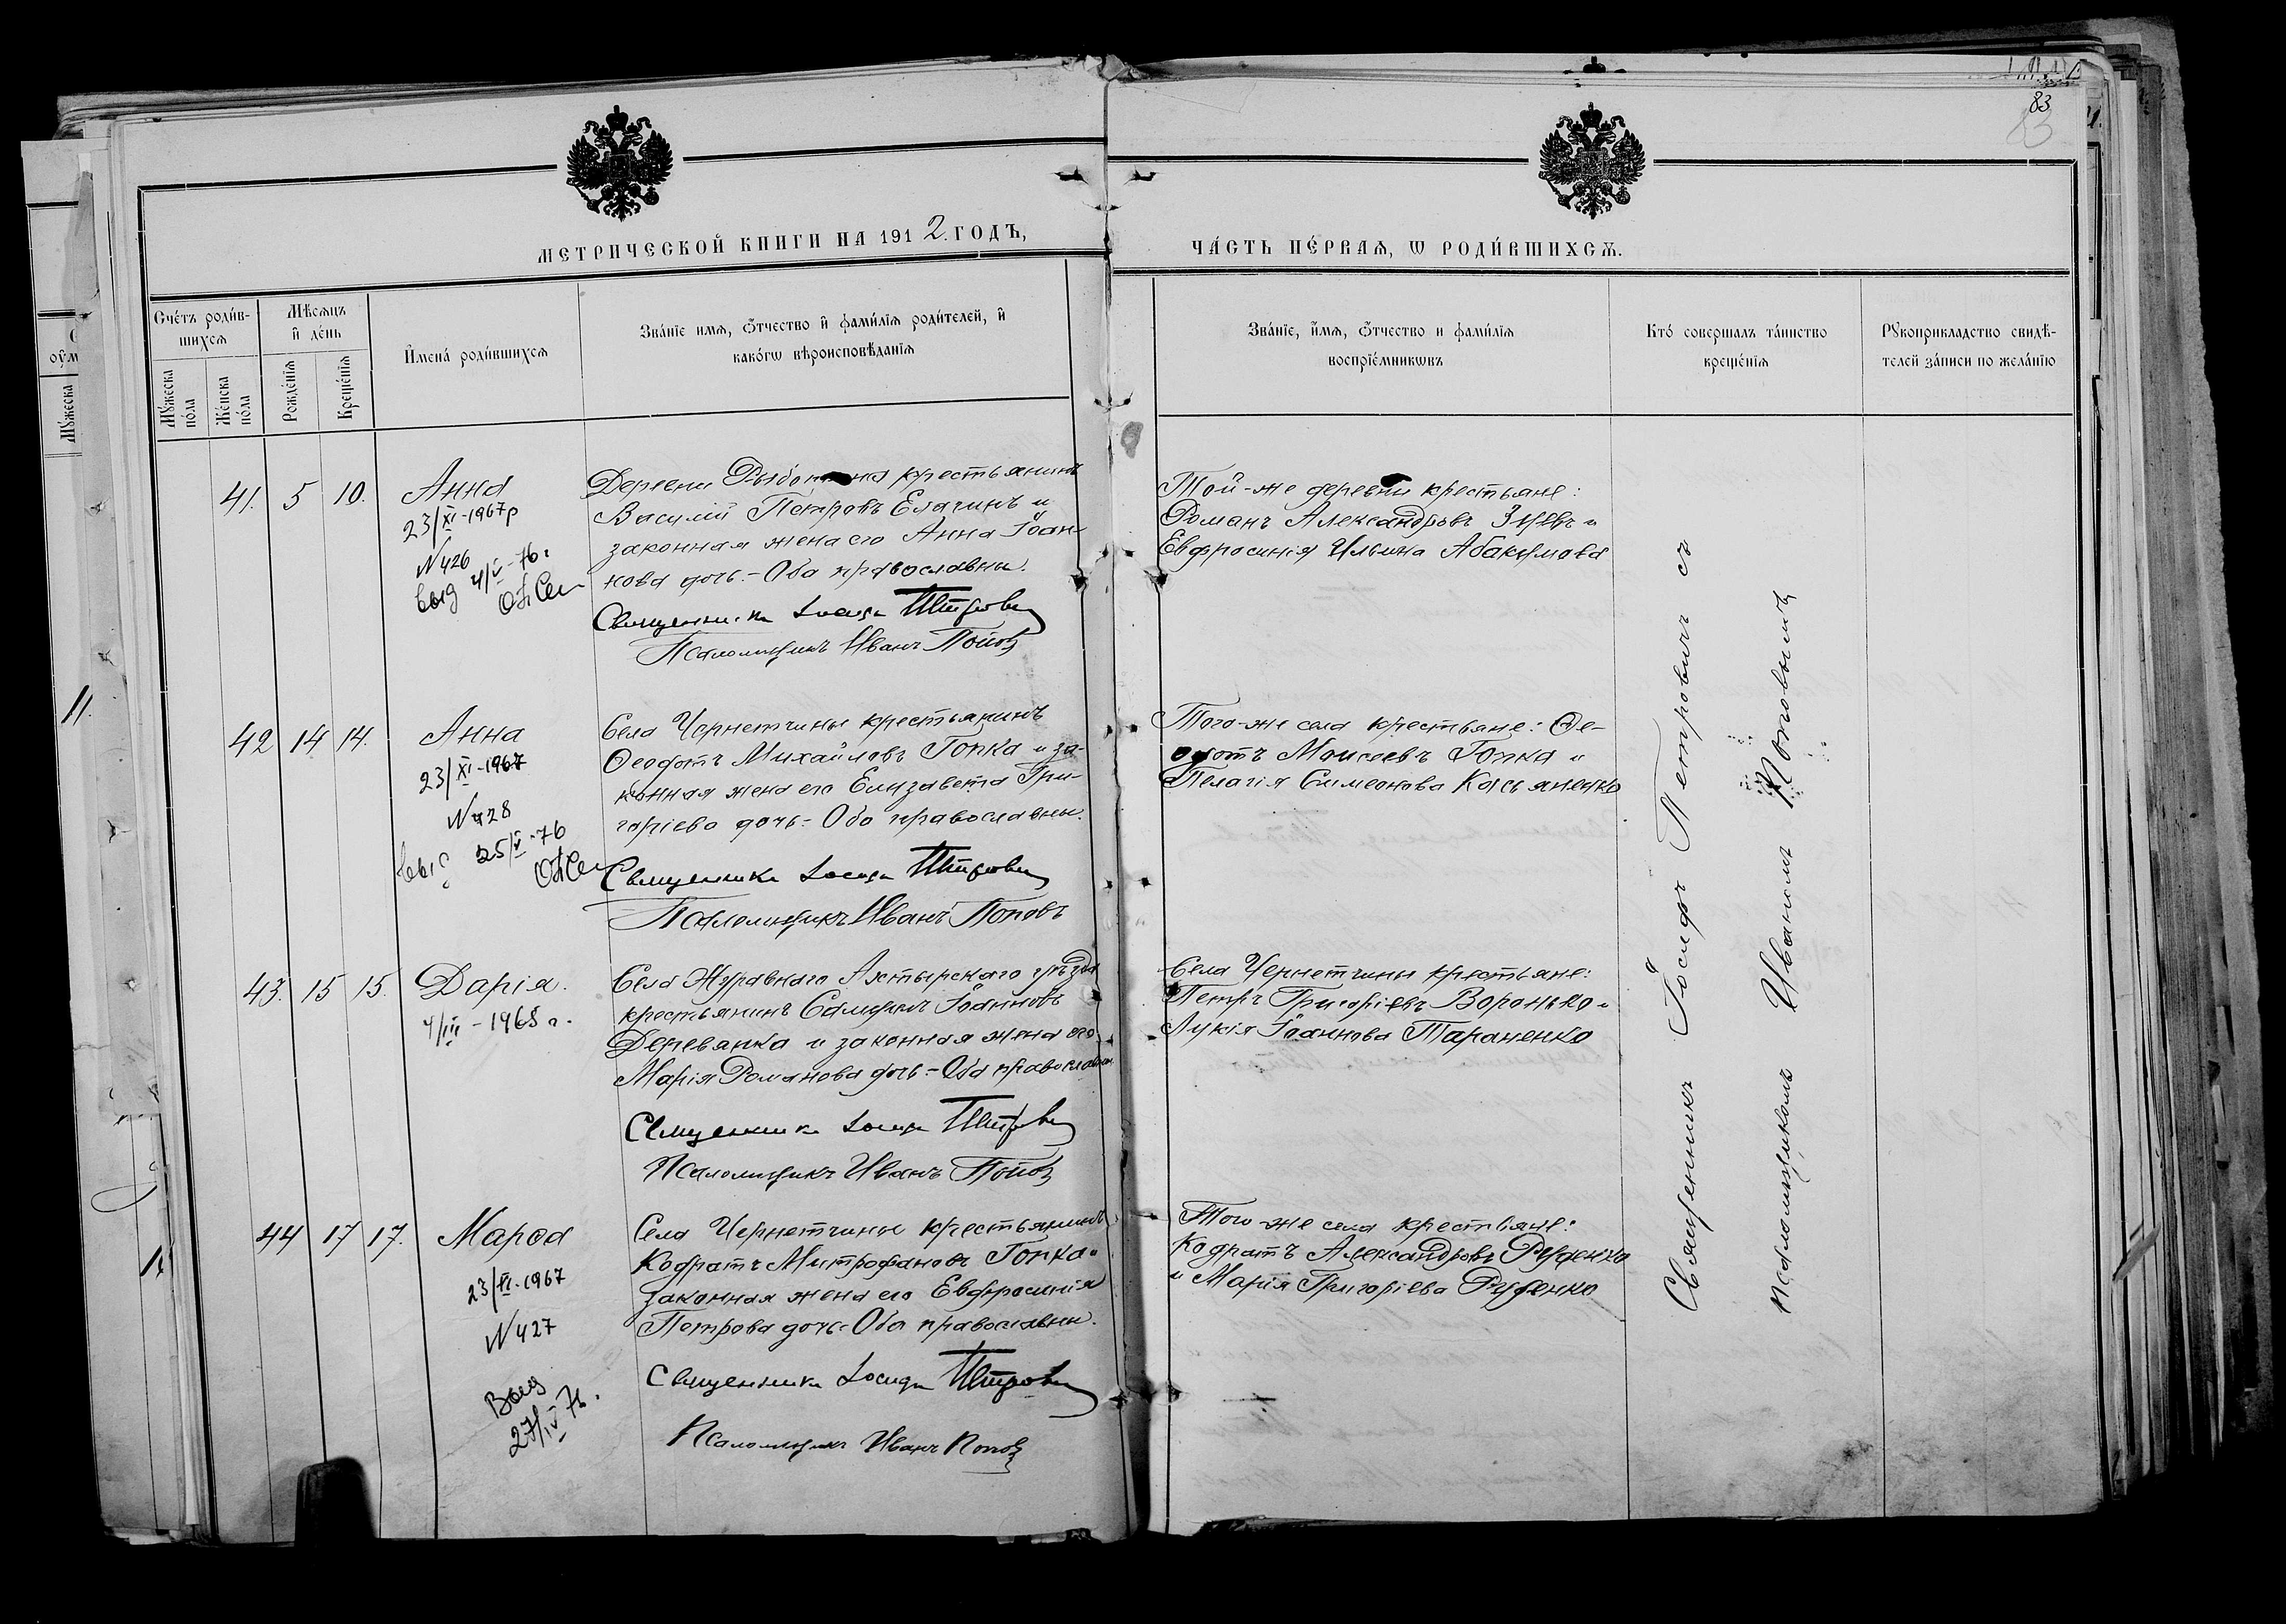 83
83
МЕТРИЧЕСКОЙ КНИГИ НА 1912. ГОДЪ,
ЧА́СТЬ ПЕ́РВАЯ, Ѡ РОДИ́ВШИХСѦ.
Сче́тъ роди́в-
шихсѧ
Му́жеска
по́ла
Же́нска
по́ла
Мѣ́сѧцъ
и҆ де́нь
Рожде́нїѧ
Креще́нїѧ
И҆мена̀ роди́вшихсѧ
Зва́нїе имѧ, ѻ҆́тчество и҆ фами́лїѧ роди́телей, и҆
како́гѡ вѣроисповѣ́данїѧ
Зва́нїе, и҆́мѧ, ѻ҆́тчество и фами́лїѧ
воспрїе́мникѡвъ
Кто́ совершалъ та́инство
креще́нїѧ
Рꙋкоприкладство свидѣ́-
телей за́писи по жела́нїю
41. 5 10. Анна
23/XI-1967р
N 426
выд 4/V-76.
Деревни крестьянинъ
Василій Петровъ Елачинъ и
законная жена его Анна Іоан-
нова дочь.-Оба православны.
Священникъ Іосифъ Петровичъ
Псаломщикъ Иванъ Поповъ
Той-же деревни крестьяне:
Романъ Александровъ и
Евфросинія Ильина Абакумова
42 14 14. Анна
23/XI-1967
N 428
25/V-76
Села Чернетчины крестьянинъ
Ѳеодотъ Михайловъ Гопка и за-
конная жена его Елизавета Гри-
горіева дочь-Оба православны.
Священникъ Іосифъ Петровичъ
Псаломщикъ Иванъ Поповъ
Того-же села крестьяне: Ѳе-
одотъ Моисеевъ Гопка и
Пелагія Симеонова Касьяненко
43. 15 15. Дарія.
4/III-1968 г.
Села Журавнаго Ахтырскаго уѣзда
крестьянинъ Іоанновъ
Деревянка и законная жена его
Марія Романова дочь-Оба православны
Священникъ Іосифъ Петровичъ
Псаломщикъ Иванъ Поповъ
Села Чернетчины крестьяне:
Петръ Григоріевъ Воронько и
Лукія Іоаннова Тараненко
44 17 17. Марѳа
23/XI-1967
N 427
Выд
27/IV 76.
Села Чернетчины крестьянинъ
Кодратъ Митрофановъ Гопка и
законная жена его Евфросинія
Петрова дочь-Оба православны.
Священникъ Іосифъ Петровичъ
Псаломщикъ Иванъ Поповъ
Того-же села крестьяне:
Кодратъ Александровъ Руденко
и Марія Григоріева Руденко
Священникъ Іосифъ Петровичъ съ
псаломщикомъ Иваномъ Поповымъ
11.